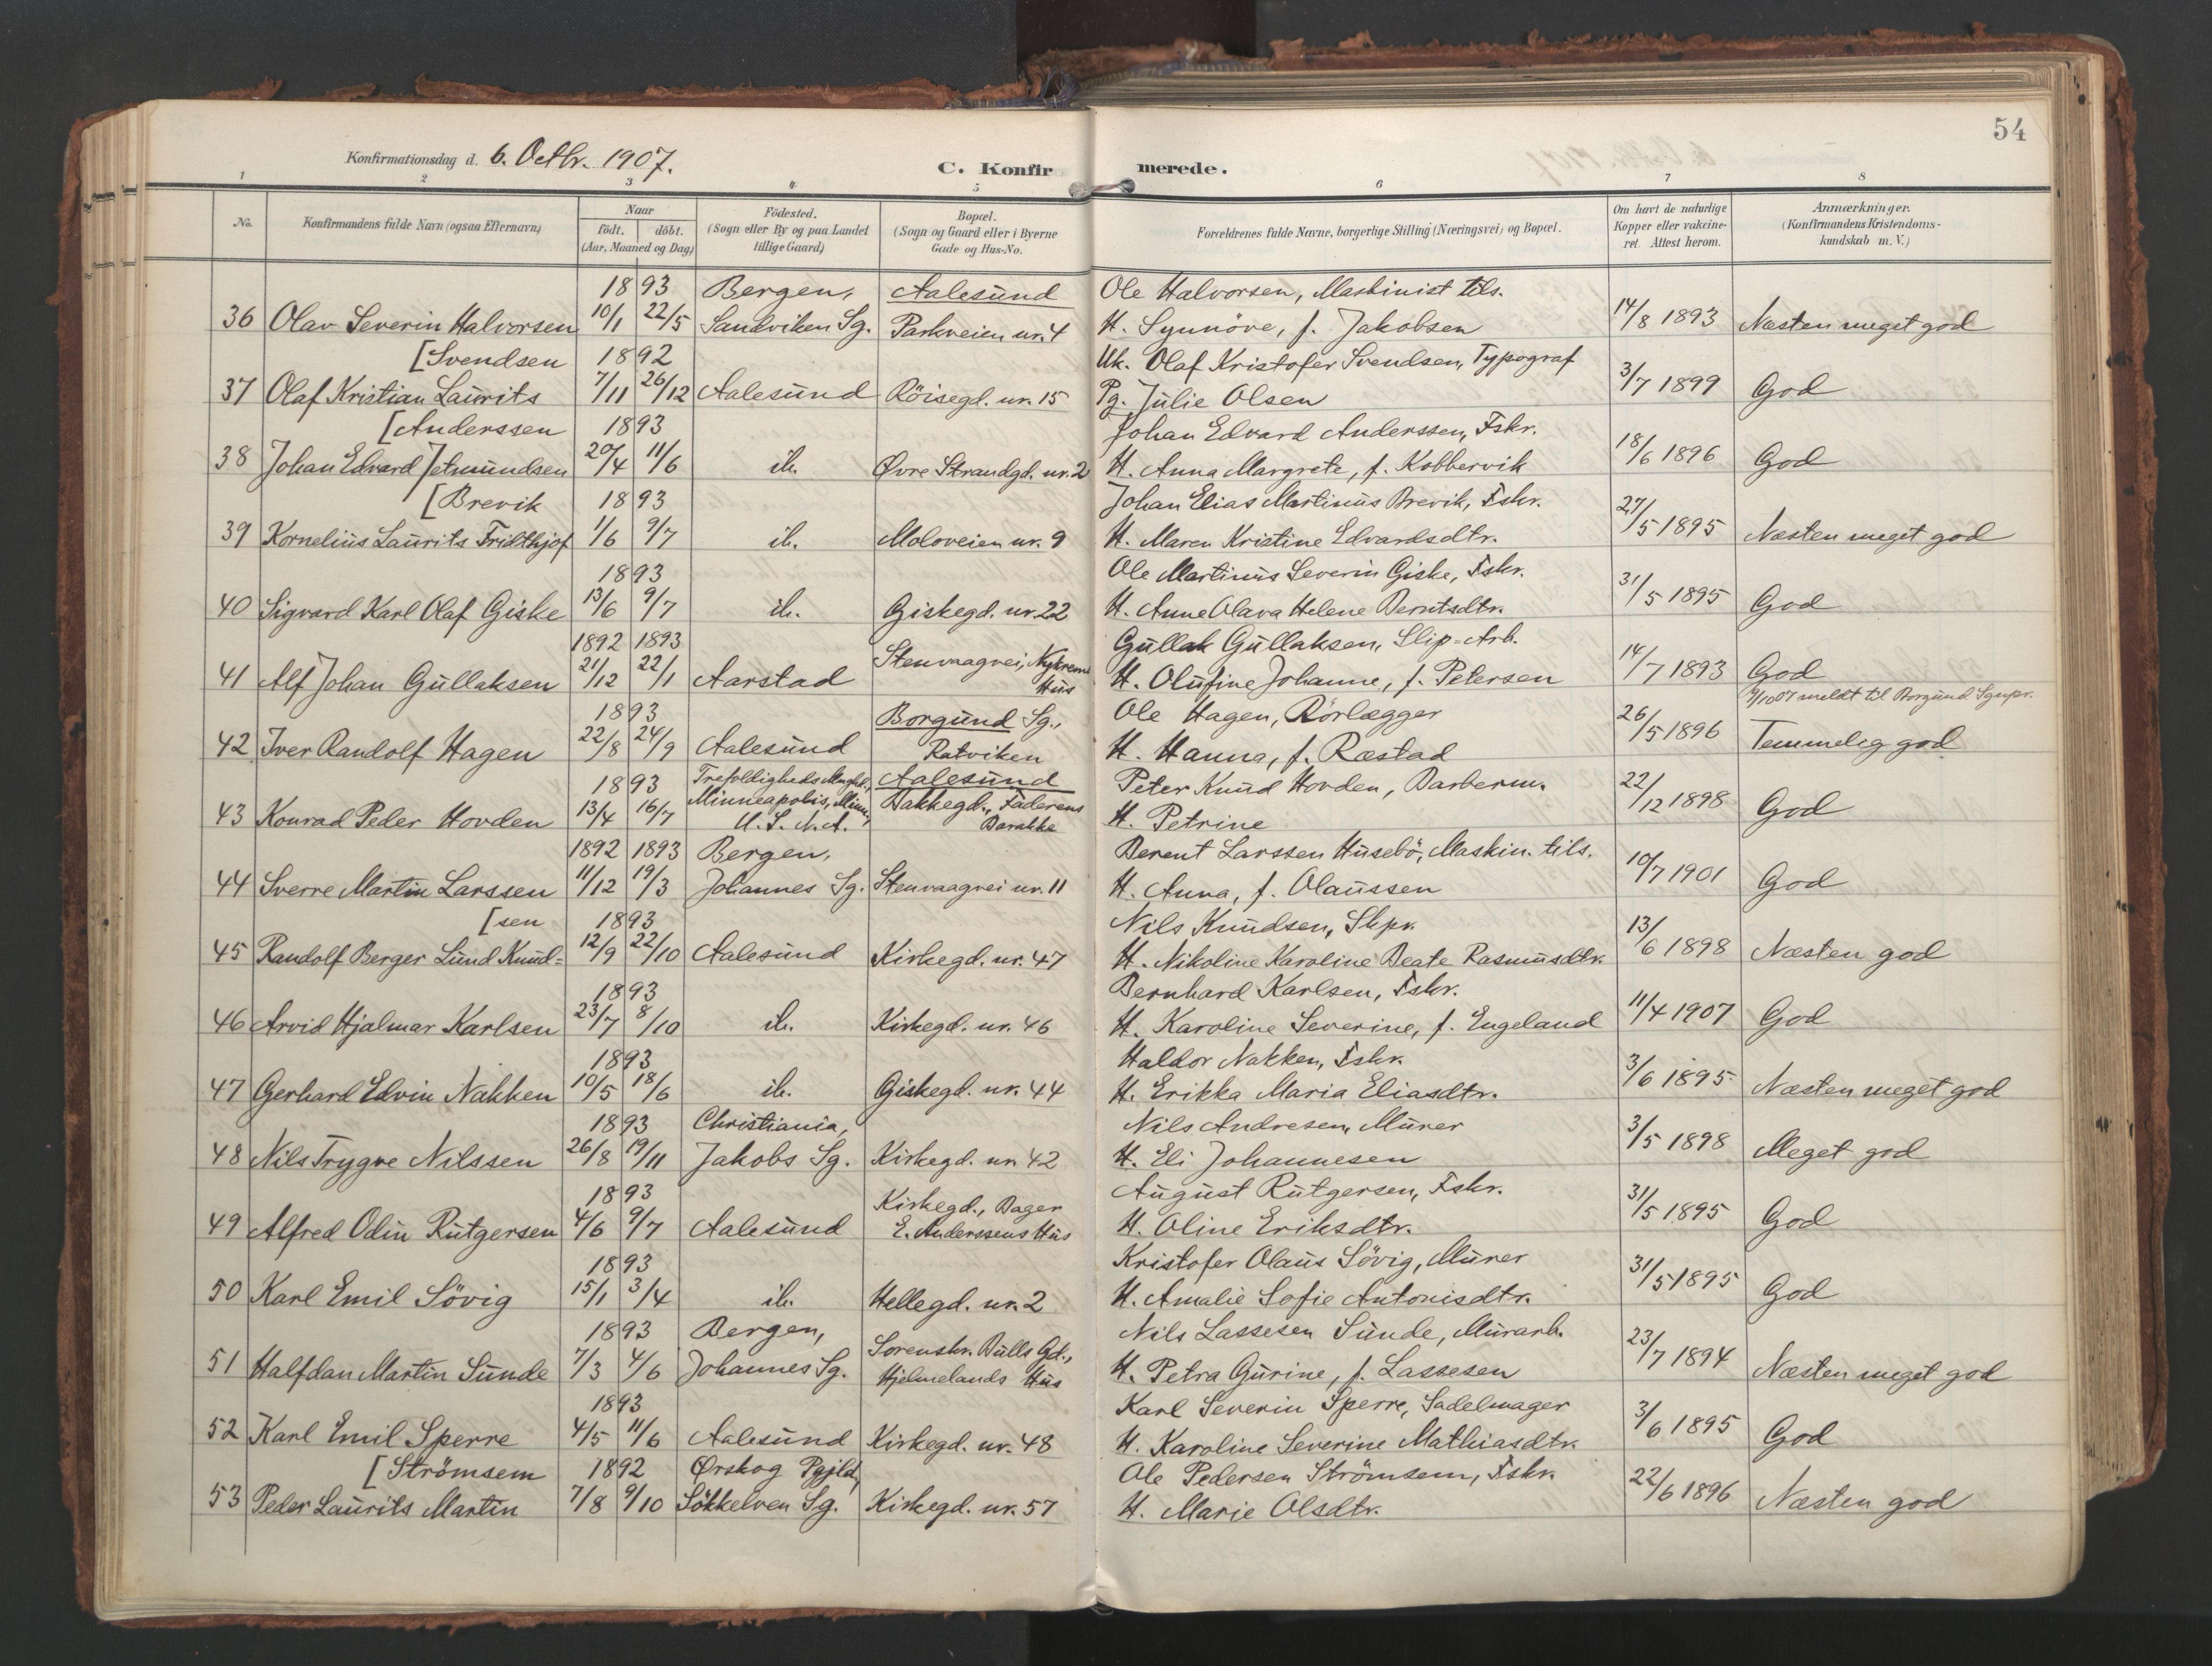 54
Konfirmationsdag d. 6. Octbr. 1907.
C. Konfirmerede.
1 2 3 4 5 6 7 8
No. Konfirmandens fulde Navn (ogsaa Efternavn) Naar født. døbt. (Aar, Maaned og Dag) Födested. (Sogn eller By og paa Landet tillige Gaard) Bopæl. (Sogn og Gaard eller i Byerne Gade og Hus-No. Forældrenes fulde Navne, borgerlige Stilling (Næringsvei) og Bopæl. Om havt de naturlige Kopper eller vaccineret. Attest herom. Anmærkninger. (Konfirmandens Kristendomskundskab m. V.)
1893 Bergen, Aalesund Ole Halvorsen, Maskinist tils.
36 Olav Severin Halvorsen 10/1 22/5 Sandviken Sg. Parkveien nr. 4 H. Synnöve, f. Jakobsen 14/8 1893 Næsten meget god
[Svendsen 1892 Uk. Olaf Kristofer Svendsen, Typograf
37 Olaf Kristian Laurits 7/11 26/12 Aalesund Röisegd. nr. 15 Pg. Julie Olsen 3/7 1899 God
[Anderssen 1893 Johan Edvard Anderssen, Fskr.
38 Johan Edvard Jetmundsen 20/4 11/6 ib. Øvre Strandgd. nr. 2 H. Anna Margrete, f. Kobbervik 18/6 1896 God
[Brevik 1893 Johan Elias Martinus Brevik, Fskr.
39 Kornelius Laurits Fridthjof 1/6 9/7 ib. Moloveien nr. 9 H. Maren Kristine Edvardsdtr. 27/5 1895 Næsten meget god
1893 Ole Martinus Severin Giske, Fskr.
40 Sigvard Karl Olaf Giske 13/6 9/7 ib. Giskegd. nr. 22 H. Anne Olava Helene Berntsdtr. 31/5 1895 God
1892 1893 Stenvaagvei, Nykrems Gullak Gullaksen, Slip-Arb.
41 Alf Johan Gullaksen 21/12 22/1 Aarstad Hus H. Olufine Johanne, f. Petersen 14/7 1893 God
1893 Borgund Sg., Ole Hagen, Rörlægger meldt til Borgund Sgnpr.
42 Iver Randolf Hagen 22/8 24/9 Aalesund Ratviken H. Hanna, f. Ræstad 26/5 1896 Temmelig god
1893 Trefoldigheds Menghd., Aalesund Peter Knud Hovden, Barberm.
43 Konrad Peder Hovden 13/4 16/7 Minneapolis, Minn., U. S. N. A. Bakkegd., Faderens Barakke H. Petrine 22/12 1898 God
1892 1893 Bergen, Berent Larssen Husebö, Maskin. tils.
44 Sverre Martin Larssen 11/12 19/3 Johannes Sg. Stenvaagvei nr. 11 H. Anna, f. Olaussen 10/7 1901 God
[sen 1893 Nils Knudsen, Skpr.
45 Randolf Berger Lund Knud= 12/9 22/10 Aalesund Kirkegd. nr. 47 H. Nikoline Karoline Beate Rasmusdtr. 13/6 1898 Næsten god
1893 Bernhard Karlsen, Fskr.
46 Arvid Hjalmar Karlsen 23/7 8/10 ib. Kirkegd. nr. 46 H. Karoline Severine, f. Engeland 11/4 1907 God
1893 Haldor Nakken, Fskr.
47 Gerhard Edvin Nakken 10/5 18/6 ib. Giskegd. nr. 44 H. Erikka Maria Eliasdtr. 3/6 1895 Næsten meget god
1893 Christiania, Nils Andresen, Murer
48 Nils Trygve Nilssen 26/8 19/11 Jakobs Sg. Kirkegd. nr. 42 H. Eli Johannesen 3/5 1898 Meget god
1893 Kirkegd., Bager August Rutgersen, Fskr.
49 Alfred Odin Rutgersen 4/6 9/7 Aalesund E. Anderssens Hus H. Oline Eriksdtr. 31/5 1895 God
1893 Kristofer Olaus Sövig, Murer
50 Karl Emil Sövig 15/1 3/4 ib. Hellegd. nr. 2 H. Amalie Sofie Antonisdtr. 31/5 1895 God
1893 Bergen, Sorenskr. Bulls Gd., Nils Lassesen Sunde, Murarb.
51 Halfdan Martin Sunde 7/3 4/6 Johannes Sg. Hjelmelands Hus H. Petra Gurine, f. Lassesen 23/7 1894 Næsten meget god
1893 Karl Severin Sperre, Sadelmager
52 Karl Emil Sperre 4/5 11/6 Aalesund Kirkegd. nr. 48 H. Karoline Severine Mathiasdtr. 3/6 1895 God
[Strömsem 1892 Ørskog Pgjld, Ole Pedersen Strömsem, Fskr.
53 Peder Laurits Martin 7/8 9/10 Sökkelven Sg. Kirkegd. nr. 57 H. Marie Olsdtr. 22/6 1896 Næsten god